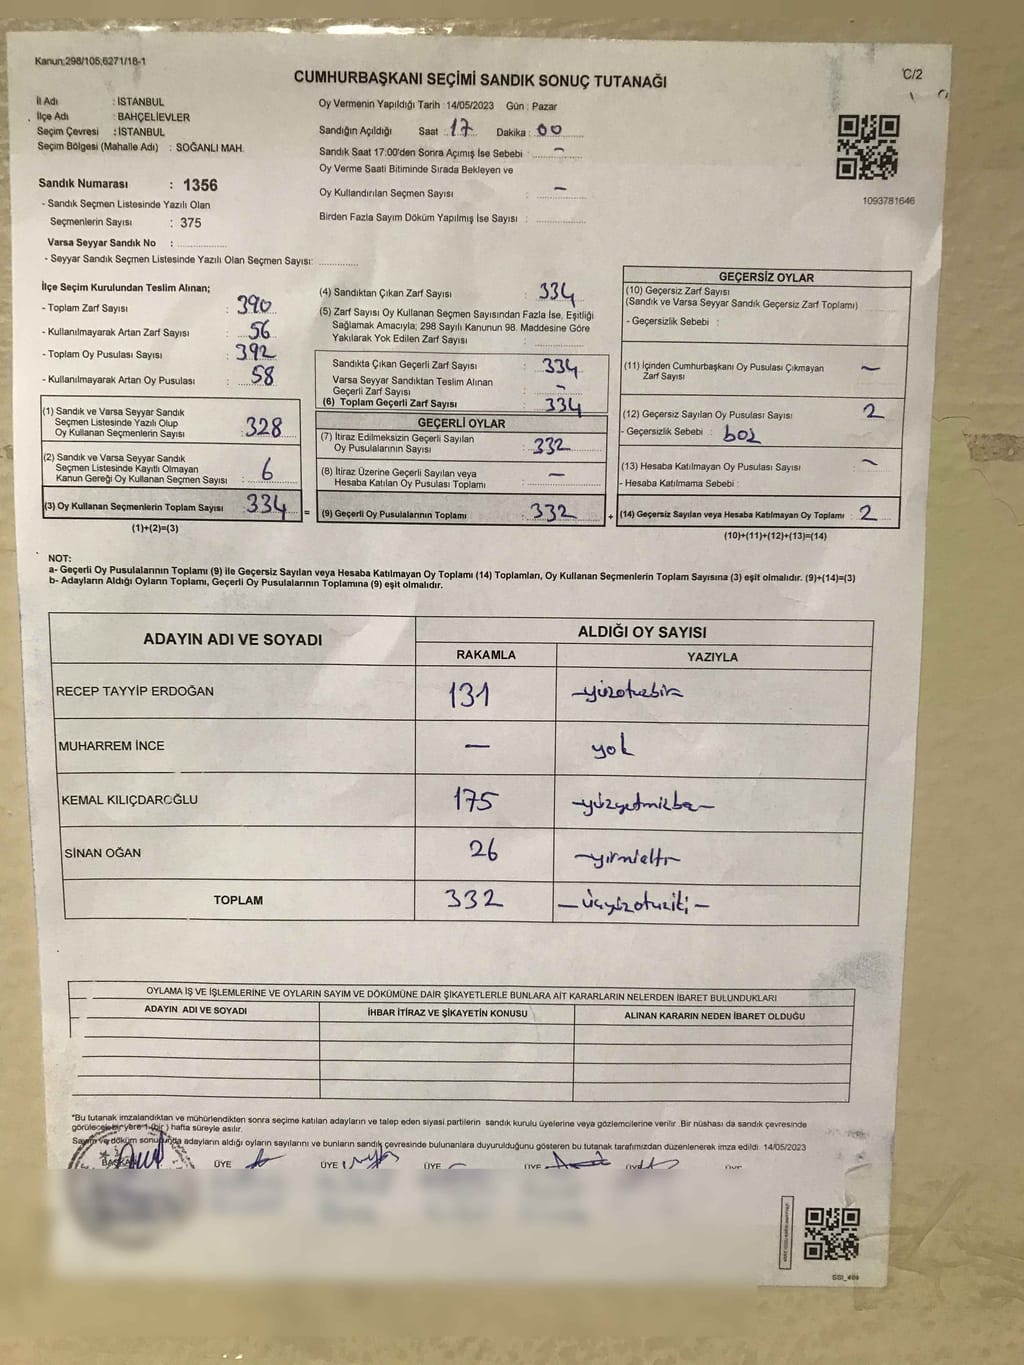 Kanun;298/105;6271/18-1
CUMHURBAŞKANI SEÇİMİ SANDIK SONUÇ TUTANAĞI
C/2
İl Adı : İSTANBUL
İlçe Adı : BAHÇELİEVLER
Seçim Çevresi : İSTANBUL
Seçim Bölgesi (Mahalle Adı) : SOĞANLI MAH.
Sandık Numarası : 1356
- Sandık Seçmen Listesinde Yazılı Olan
Seçmenlerin Sayısı : 375
Varsa Seyyar Sandık No :
- Seyyar Sandık Seçmen Listesinde Yazılı Olan Seçmen Sayısı:
Oy Vermenin Yapıldığı Tarih : 14/05/2023 Gün : Pazar
Sandığın Açıldığı Saat : 17 Dakika : 00
Sandık Saat 17:00'den Sonra Açımış İse Sebebi : –
Oy Verme Saati Bitiminde Sırada Bekleyen ve
Oy Kullandırılan Seçmen Sayısı : –
Birden Fazla Sayım Döküm Yapılmış İse Sayısı :
1093781646
İlçe Seçim Kurulundan Teslim Alınan;
- Toplam Zarf Sayısı : 390
- Kullanılmayarak Artan Zarf Sayısı : 56
- Toplam Oy Pusulası Sayısı : 392
- Kullanılmayarak Artan Oy Pusulası : 58
(1) Sandık ve Varsa Seyyar Sandık
Seçmen Listesinde Yazılı Olup
Oy Kullanan Seçmenlerin Sayısı : 328
(2) Sandık ve Varsa Seyyar Sandık
Seçmen Listesinde Kayıtlı Olmayan
Kanun Gereği Oy Kullanan Seçmen Sayısı : 6
(3) Oy Kullanan Seçmenlerin Toplam Sayısı : 334
(1)+(2)=(3)
(4) Sandıktan Çıkan Zarf Sayısı : 334
(5) Zarf Sayısı Oy Kullanan Seçmen Sayısından Fazla İse, Eşitliği
Sağlamak Amacıyla; 298 Sayılı Kanunun 98. Maddesine Göre
Yakılarak Yok Edilen Zarf Sayısı :
Sandıkta Çıkan Geçerli Zarf Sayısı : 334
Varsa Seyyar Sandıktan Teslim Alınan
Geçerli Zarf Sayısı : –
(6) Toplam Geçerli Zarf Sayısı : 334
GEÇERLİ OYLAR
(7) İtiraz Edilmeksizin Geçerli Sayılan
Oy Pusulalarının Sayısı : 332
(8) İtiraz Üzerine Geçerli Sayılan veya
Hesaba Katılan Oy Pusulası Toplamı : –
= (9) Geçerli Oy Pusulalarının Toplamı : 332 +
GEÇERSİZ OYLAR
(10) Geçersiz Zarf Sayısı
(Sandık ve Varsa Seyyar Sandık Geçersiz Zarf Toplamı)
- Geçersizlik Sebebi :
(11) İçinden Cumhurbaşkanı Oy Pusulası Çıkmayan
Zarf Sayısı –
(12) Geçersiz Sayılan Oy Pusulası Sayısı : 2
- Geçersizlik Sebebi : boş
(13) Hesaba Katılmayan Oy Pusulası Sayısı : –
- Hesaba Katılmama Sebebi :
(14) Geçersiz Sayılan veya Hesaba Katılmayan Oy Toplamı : 2
(10)+(11)+(12)+(13)=(14)
NOT:
a- Geçerli Oy Pusulalarının Toplamı (9) ile Geçersiz Sayılan veya Hesaba Katılmayan Oy Toplamı (14) Toplamları, Oy Kullanan Seçmenlerin Toplam Sayısına (3) eşit olmalıdır. (9)+(14)=(3)
b- Adayların Aldığı Oyların Toplamı, Geçerli Oy Pusulalarının Toplamına (9) eşit olmalıdır.
ADAYIN ADI VE SOYADI ALDIĞI OY SAYISI
RAKAMLA YAZIYLA
RECEP TAYYİP ERDOĞAN 131 –yüzotuzbir
MUHARREM İNCE – yok
KEMAL KILIÇDAROĞLU 175 –yüzyetmişbeş–
SİNAN OĞAN 26 –yirmialtı–
TOPLAM 332 –üçyüzotuziki–
OYLAMA İŞ VE İŞLEMLERİNE VE OYLARIN SAYIM VE DÖKÜMÜNE DAİR ŞİKAYETLERLE BUNLARA AİT KARARLARIN NELERDEN İBARET BULUNDUKLARI
ADAYIN ADI VE SOYADI İHBAR İTİRAZ VE ŞİKAYETİN KONUSU ALINAN KARARIN NEDEN İBARET OLDUĞU
*Bu tutanak imzalandıktan ve mühürlendikten sonra seçime katılan adayların ve talep eden siyasi partilerin sandık kurulu üyelerine veya gözlemcilerine verilir .Bir nüshası da sandık çevresinde
görülecek bir yere 1 (bir ) hafta süreyle asılır.
Sayım ve döküm sonucunda adayların aldığı oyların sayılarını ve bunların sandık çevresinde bulunanlara duyurulduğunu gösteren bu tutanak tarafımızdan düzenlenerek imza edildi 14/05/2023
BAŞKAN ÜYE ÜYE ÜYE ÜYE ÜYE